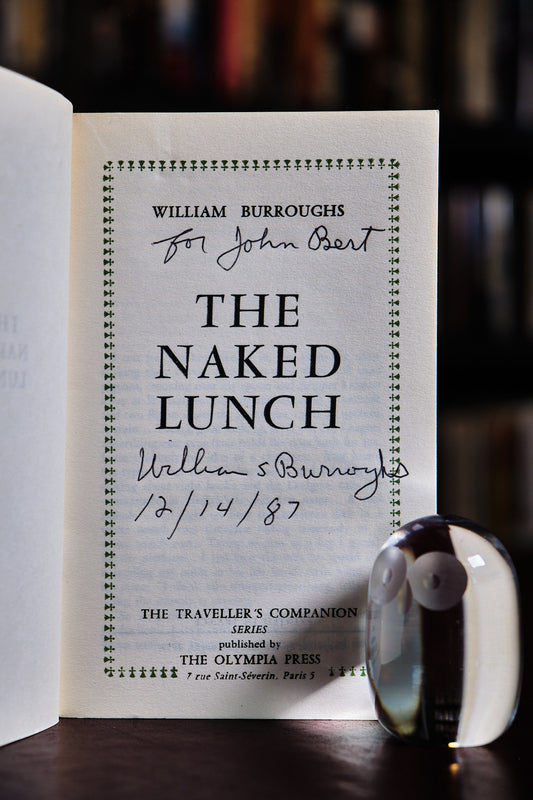 WILLIAM BURROUGHS
for John Bert
THE
NAKED
LUNCH
William S Burroughs
12/14/87
THE TRAVELLER'S COMPANION
SERIES
published by
THE OLYMPIA PRESS
7 rue Saint-Séverin, Paris 5